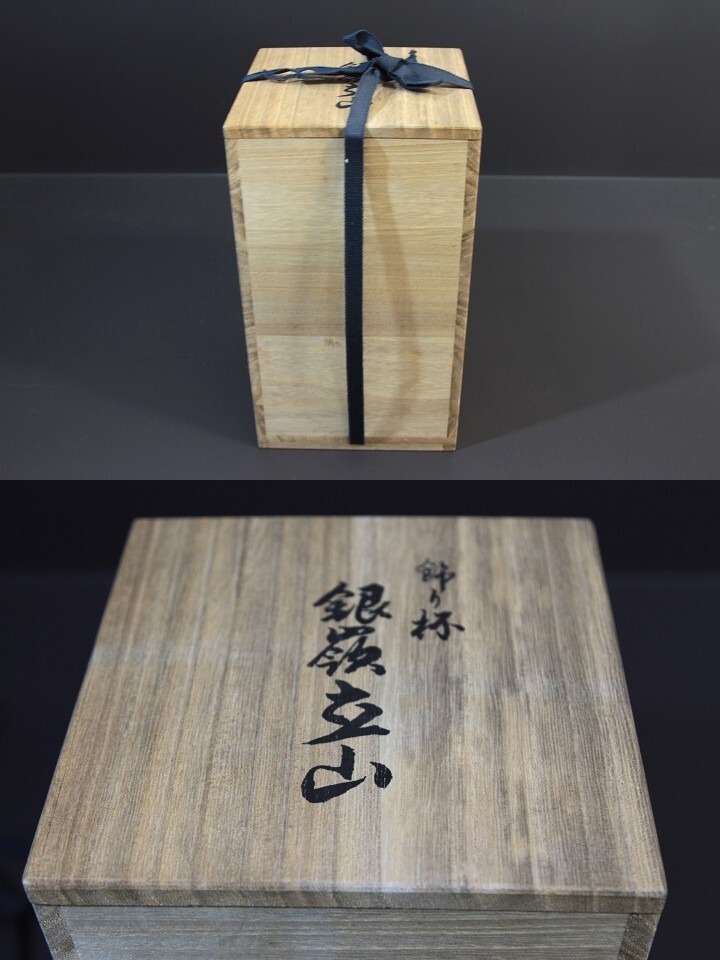 飾り杯
銀嶺立山